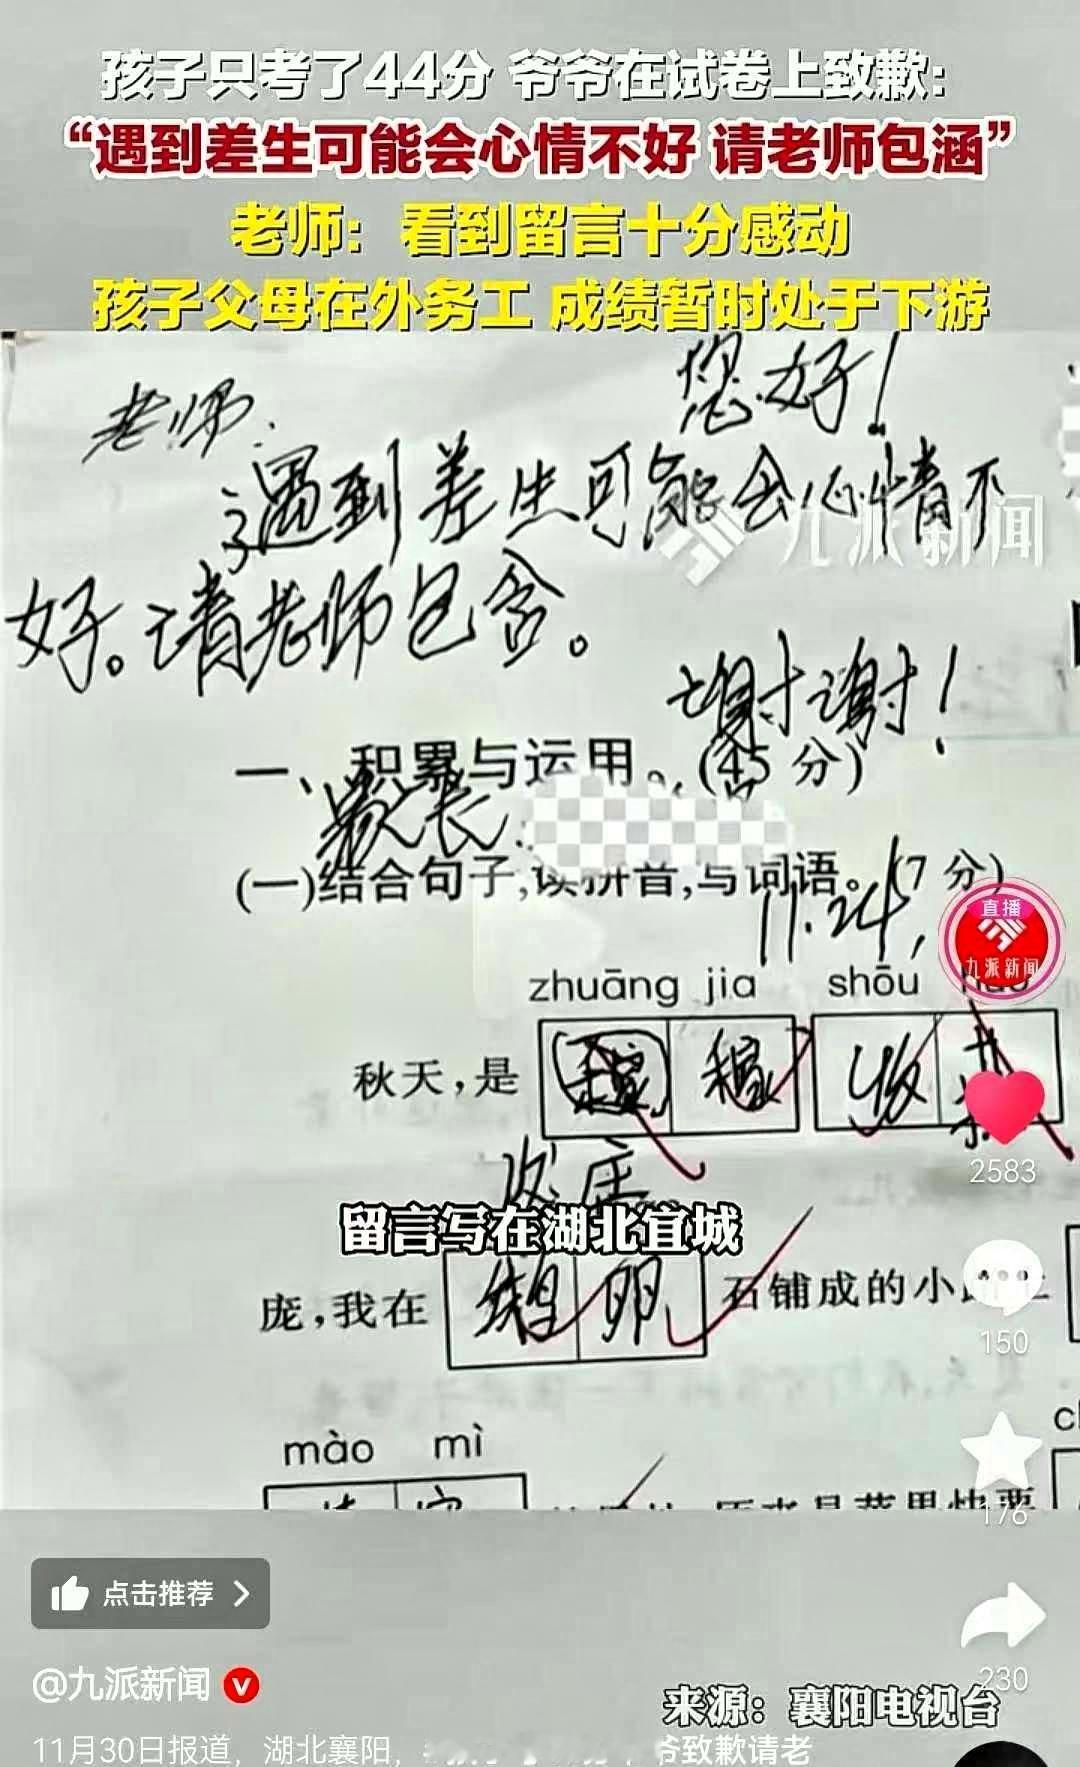 孩子只考了44分 爷爷在试卷上致歉：
“遇到差生可能会心情不好 请老师包涵”
老师：看到留言十分感动
孩子父母在外务工 成绩暂时处于下游
老师.
您好！
遇到差生可能会心情不
九派新闻
好。请老师包含。
谢谢！
一、积累与运用。(45分)
家长
(一)结合句子,读拼音,写词语。(7分)
11.24
直播
九派新闻
zhuāng jia shōu
秋天,是 稼 收
庄
2583
留言写在湖北宜城
庞,我在 卵 石铺成的小路上
150
mào mì
176
点击推荐
230
@九派新闻
来源：襄阳电视台
11月30日报道，湖北襄阳，
爷致歉请老